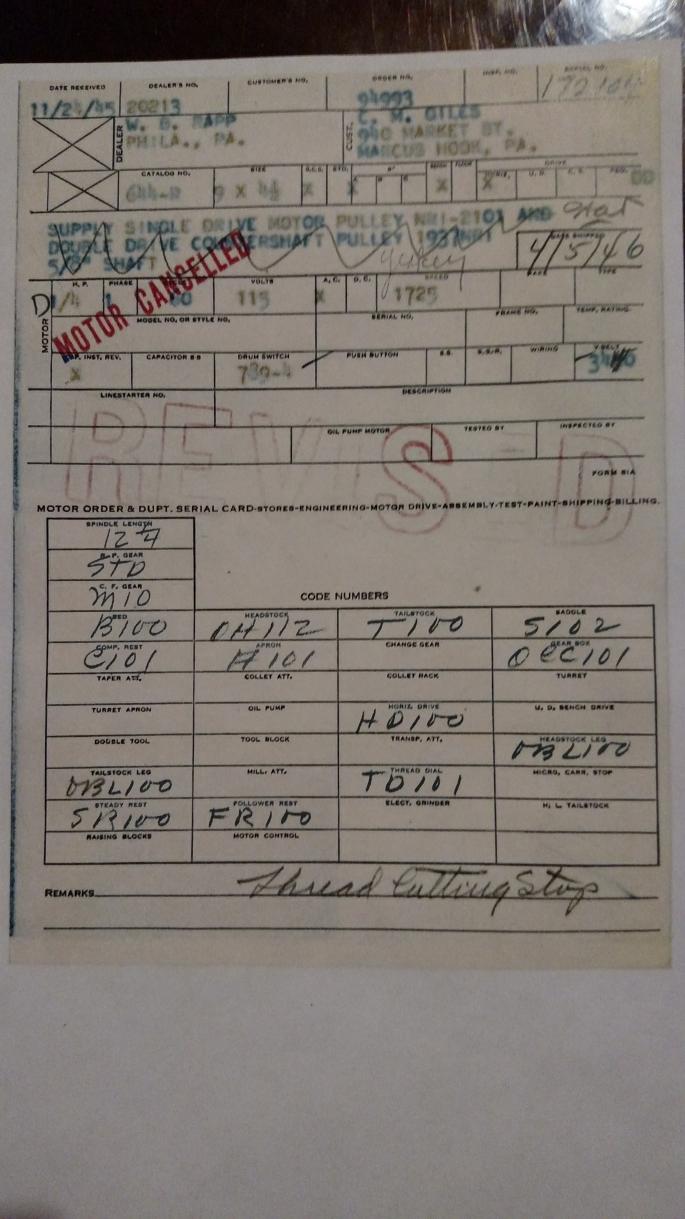 DATE RECEIVED DEALER'S NO. CUSTOMER'S NO. ORDER NO. INSP. NO. SERIAL NO.
11/24/45 20213 94993
DEALER W. B. RAPP CUST. C. M. GILES
PHILA., PA. 940 MARKET ST.
MARCUS HOOK, PA.
CATALOG NO. SIZE STD. DRIVE
644-R 9 X 4½ X X X X
SUPPLY SINGLE DRIVE MOTOR PULLEY NR1-2101 AND
DOUBLE DRIVE COUNTERSHAFT PULLEY 1937NR1
5/8" SHAFT
DATE SHIPPED
4/5/46
MOTOR CANCELLED
MOTOR H.P. PHASE VOLTS A.C. D.C. SPEED MAKE TYPE
D 1/4 1 60 115 X 1725
MODEL NO. OR STYLE NO. SERIAL NO. FRAME NO. TEMP. RATING
INST. REV. CAPACITOR DRUM SWITCH PUSH BUTTON WIRING V BELT
X 789-4
LINESTARTER NO. DESCRIPTION
REVISED
OIL PUMP MOTOR TESTED BY INSPECTED BY
FORM 81A
MOTOR ORDER & DUPT. SERIAL CARD-STORES-ENGINEERING-MOTOR DRIVE-ASSEMBLY-TEST-PAINT-SHIPPING-BILLING.
SPINDLE LENGTH
B.P. GEAR
STD
C.F. GEAR
M10
CODE NUMBERS
BED HEADSTOCK TAILSTOCK SADDLE
B100 OH112 T100 S102
COMP. REST APRON CHANGE GEAR GEAR BOX
C101 A101 OCC101
TAPER ATT. COLLET ATT. COLLET RACK TURRET
TURRET APRON OIL PUMP HORIZ. DRIVE U. D. BENCH DRIVE
HD100
DOUBLE TOOL TOOL BLOCK TRANSP. ATT. HEADSTOCK LEG
OBL100
TAILSTOCK LEG MILL. ATT. THREAD DIAL MICRO. CARR. STOP
OBL100 TD101
STEADY REST FOLLOWER REST ELECT. GRINDER H. L. TAILSTOCK
SR100 FR100
RAISING BLOCKS MOTOR CONTROL
REMARKS Thread Cutting Stop